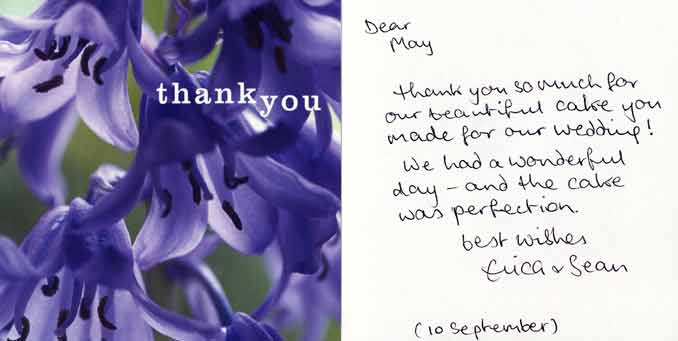 thank you
Dear
May
thank you so much for
our beautiful cake you
made for our wedding!
We had a wonderful
day - and the cake
was perfection.
best wishes
Erica & Sean
(10 September)